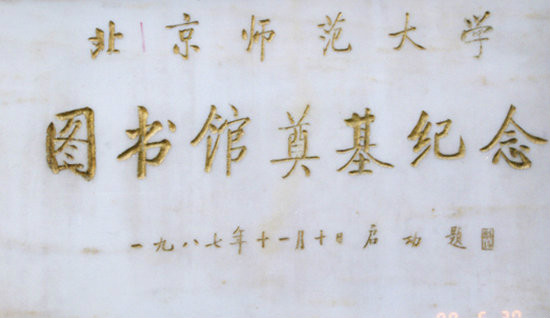 北京师范大学
图书馆奠基纪念
一九八七年十一月十日 启功 题